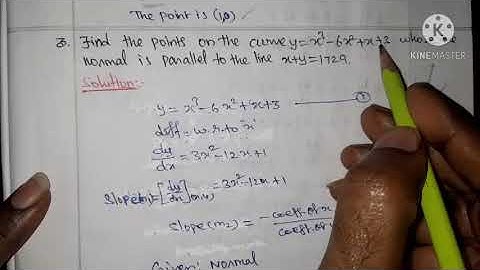 The point is (1,0)
8. Find the points on the curve y=x³-6x²+x+3 the
normal is parallel to the line x+y=1729.
Solution:-
y = x³-6x²+x+3 ①
diff w.r.to 'x'
dy/dx = 3x²-12x+1
= 3x²-12x+1
slope(m₂) = -coeff.of x / coeff.of
Given: Normal
KINEMASTER